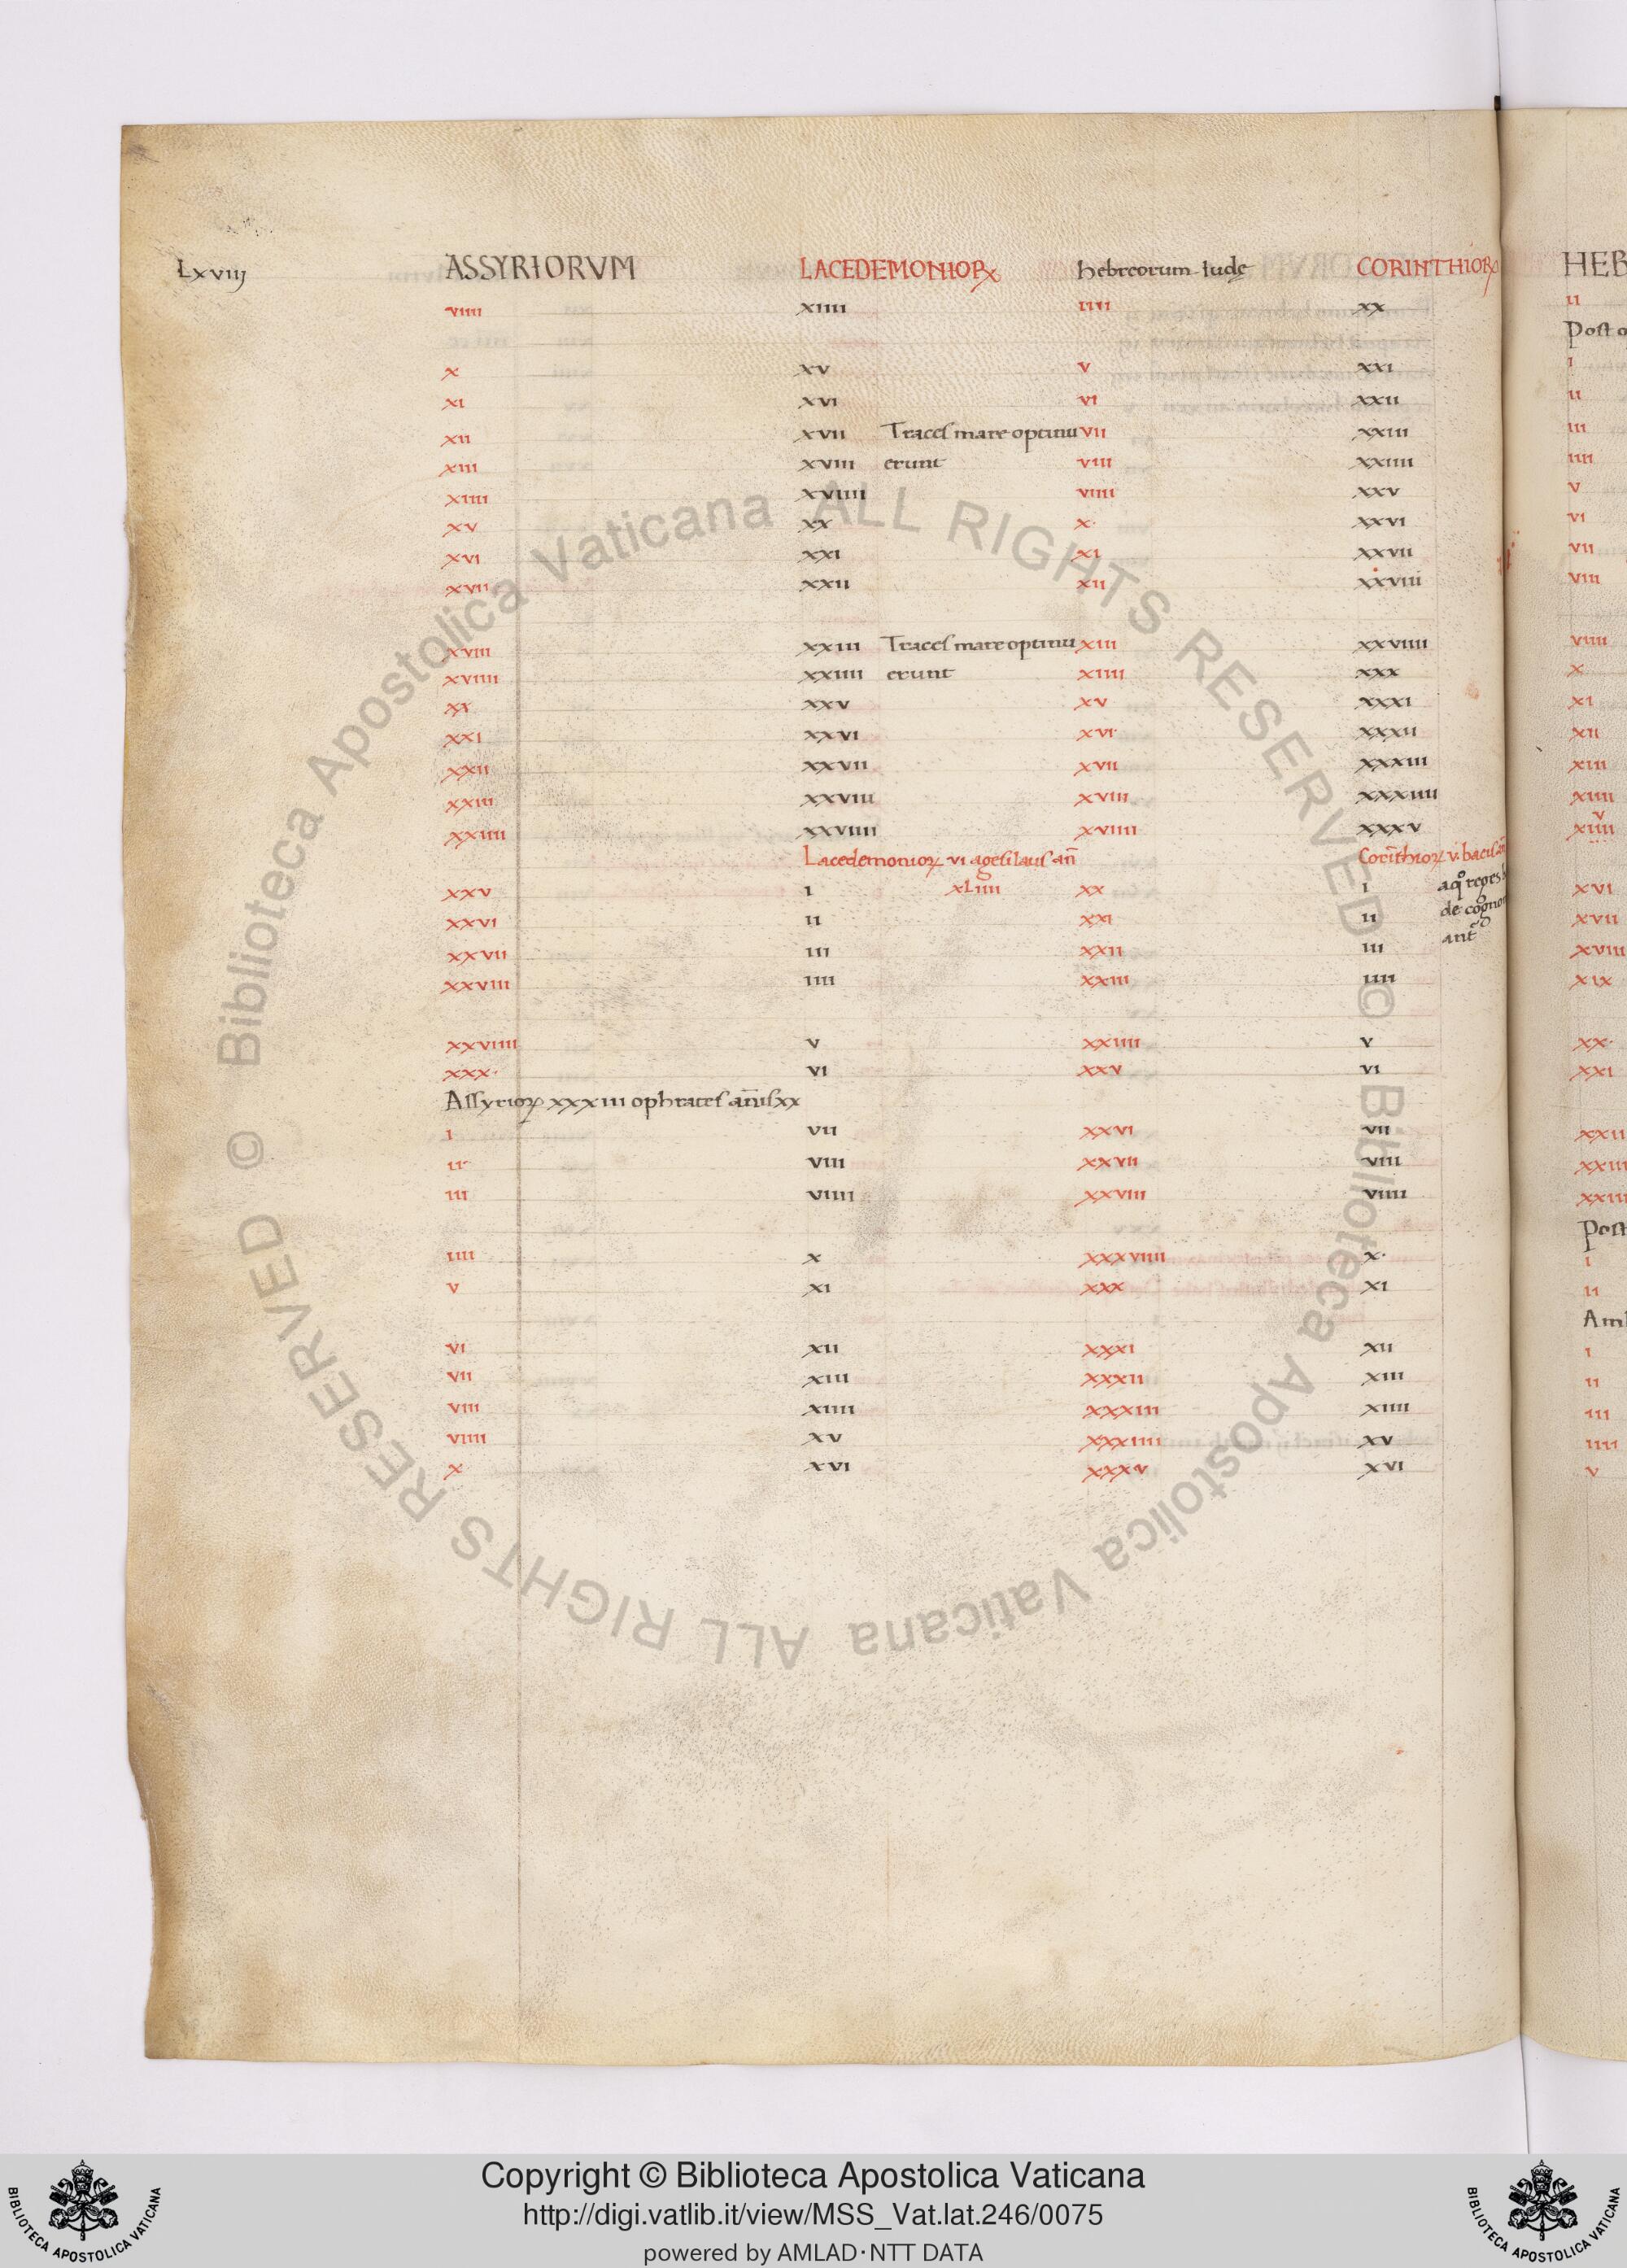 Lxviij ASSYRIORVM LACEDEMONIOR̄ hebreorum iudę CORINTHIOR̄ HEB
viiii xiiii iiii xx ii
Post
x xv v xxi i
xi xvi vi xxii ii
xii xvii Traces mare optinu vii xxiii iii
xiii xviii erunt viii xxiiii iiii
xiiii xviiii viiii xxv v
xv xx x· xxvi vi
xvi xxi xi xxvii vii
xvii xxii xii xxviii viii
xviii xxiii Traces mare optinu xiii xxviiii viiii
xviiii xxiiii erunt xiiii xxx x
xx xxv xv xxxi xi
xxi xxvi xvi· xxxii xii
xxii xxvii xvii xxxiii xiii
xxiii xxviii xviii xxxiiii xiiii
xxiiii xxviiii xviiii xxxv xiiii
Lacedemonioꝝ vi agesilaus an̄ Corīthioꝝ v. bacis
xxv i xLiiii xx i aqͦ reges xvi
xxvi ii xxi ii de cogno xvii
xxvii iii xxii iii ant xviii
xxviii iiii xxiii iiii xix
xxviiii v xxiiii v xx·
xxx· vi xxv vi xxi
Assyrioꝝ xxxiii ophrates an̄is xx
i vii xxvi vii xxii
ii· viii xxvii viii xxiii
iii viiii xxviii viiii xxiiii
Post
iiii x xxxviiii x· i
v xi xxx xi ii
Am
vi xii xxxi xii i
vii xiii xxxii xiii ii
viii xiiii xxxiii xiiii iii
viiii xv xxxiiii xv iiii
x xvi xxxv xvi v
© Biblioteca Apostolica Vaticana ALL RIGHTS RESERVED © Biblioteca Apostolica Vaticana ALL RIGHTS RESERVED
Copyright © Biblioteca Apostolica Vaticana
http://digi.vatlib.it/view/MSS_Vat.lat.246/0075
powered by AMLAD·NTT DATA
BIBLIOTECA APOSTOLICA VATICANA
BIBLIOTECA APOSTOLICA VATICANA